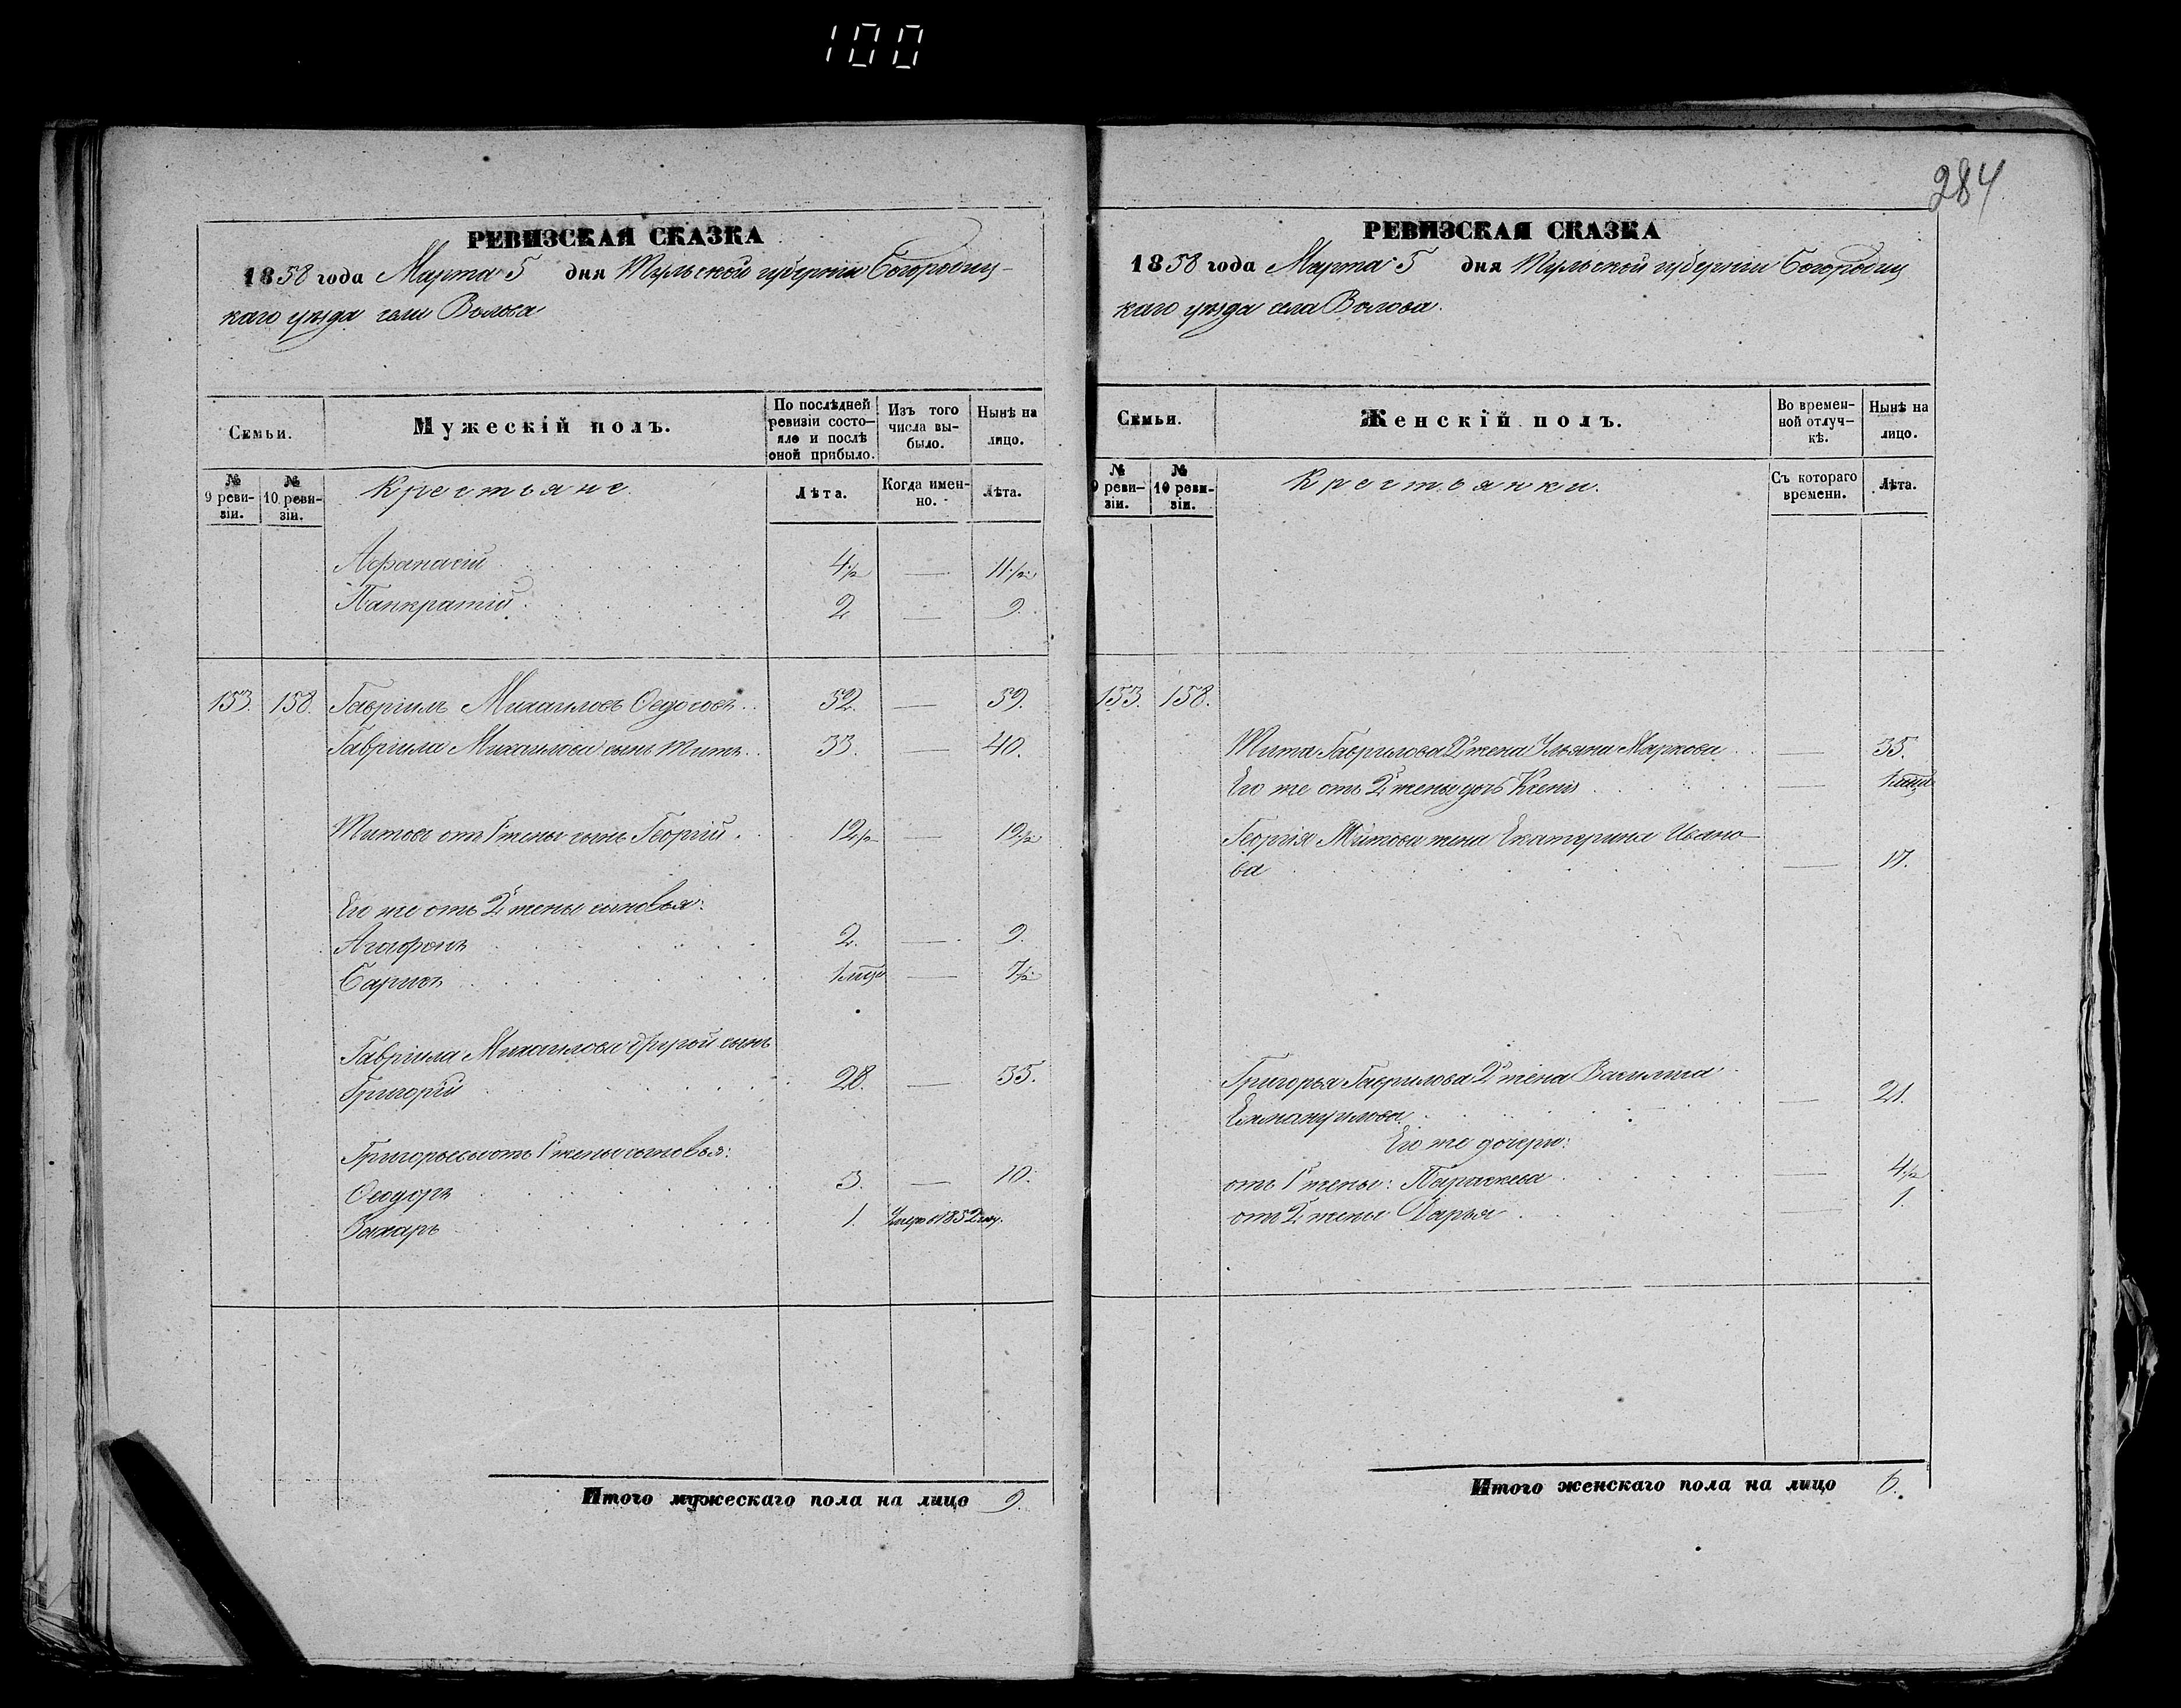 100
284
РЕВИЗСКАЯ СКАЗКА
1858 года Марта 5 дня Тульской губернии Богородиц-
каго уезда села Волова
Семьи.
Мужескій полъ.
По послѣдней ревизіи состо-яло и послѣ оной прибыло.
Изъ того числа вы-было.
Нынѣ на лицо.
№ 9 реви-зіи.
№ 10 реви-зіи.
Крестьяне.
Лѣта.
Когда имен-но.
Лѣта.
Афанасій 4½ — 11½
Панкратій 2 — 9
153. 158. Гавріилъ Михаиловъ Ѳедосовъ 52. — 59.
Гавріила Михаилова сынъ Титъ 33. — 40.
Титовъ от 1й жены сынъ Георгій 12½ — 19½
Его же отъ 2й жены сыновья:
Агафонъ 2. — 9.
— 7½
Гавріила Михаилова другой сынъ
Григорій 28. — 35.
Григорьевы отъ 1й жены сыновья:
Ѳеодоръ 3. — 10.
Захаръ 1. Умеръ в 1852 году.
Итого мужескаго пола на лицо 9.
РЕВИЗСКАЯ СКАЗКА
1858 года Марта 5 дня Тульской губернии Богородиц
каго уезда села Волова.
Семьи.
Женскій полъ.
Во времен-ной отлуч-кѣ.
Нынѣ на лицо.
№ 9 реви-зіи.
№ 10 реви-зіи.
Крестьянки.
Съ котораго времени.
Лѣта.
153. 158.
Тита Гаврилова 2я жена Ульяна Маркова — 35.
Его же отъ 2й жены дочь —
Георгія Титова жена Екатерина Ивано-
ва — 17.
Григорья Гаврилова 2я жена Василиса
— 21.
Его же дочери:
отъ 1й жены: Параскева — 4½
отъ 2й жены Дарья — 1.
Итого женскаго пола на лицо 6.